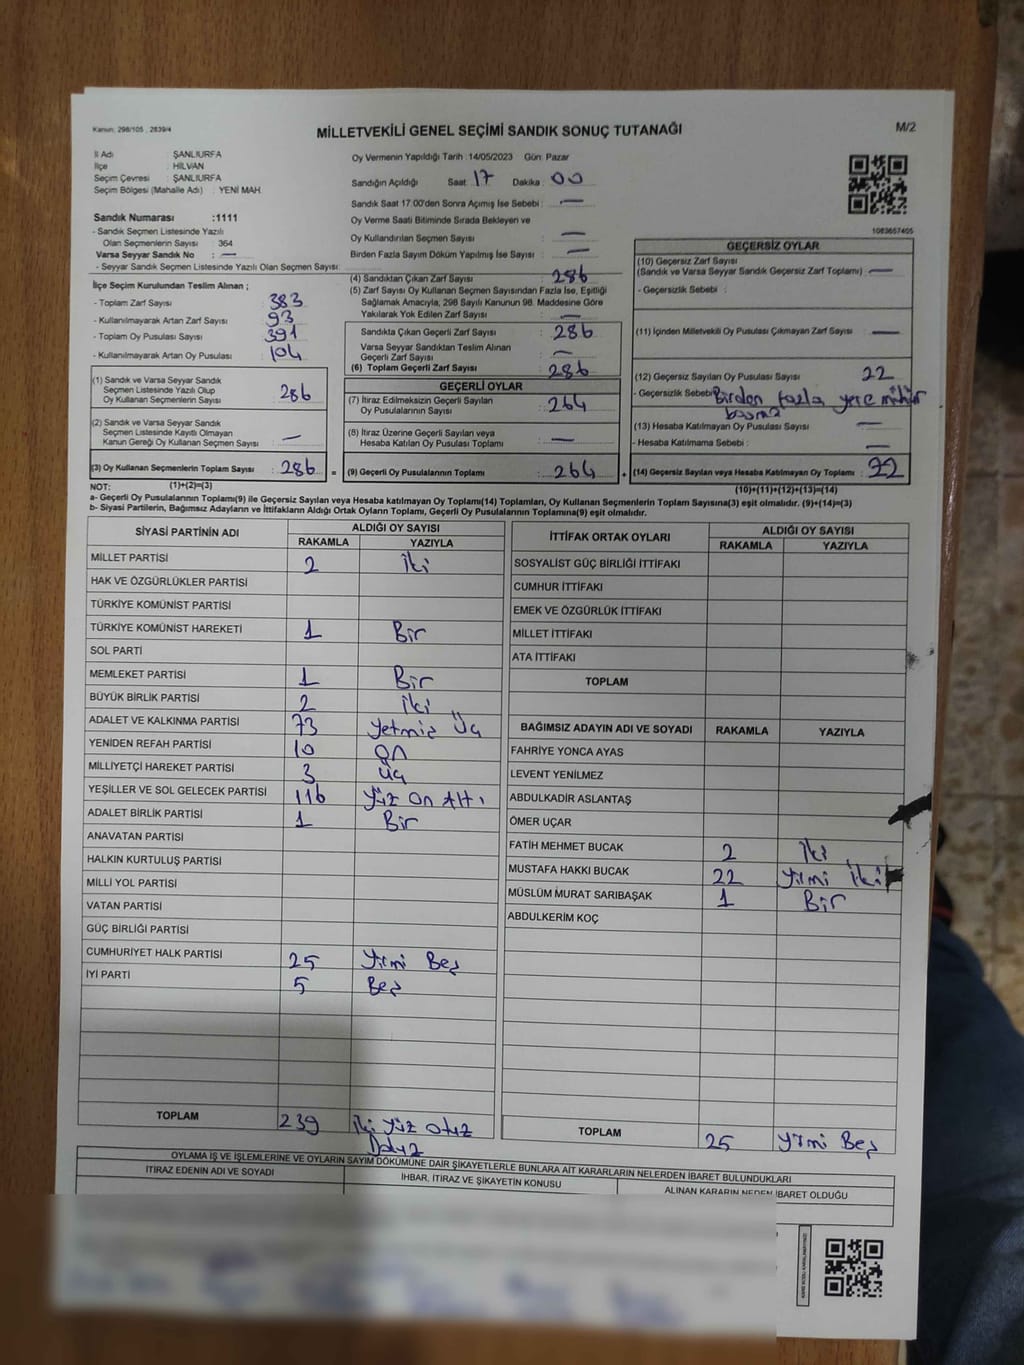 Kanun: 298/105 , 2839/4
MİLLETVEKİLİ GENEL SEÇİMİ SANDIK SONUÇ TUTANAĞI
M/2
İl Adı : ŞANLIURFA
İlçe : HİLVAN
Seçim Çevresi : ŞANLIURFA
Seçim Bölgesi (Mahalle Adı) : YENİ MAH.
Sandık Numarası :1111
- Sandık Seçmen Listesinde Yazılı
Olan Seçmenlerin Sayısı : 364
Varsa Seyyar Sandık No : —
- Seyyar Sandık Seçmen Listesinde Yazılı Olan Seçmen Sayısı:
İlçe Seçim Kurulundan Teslim Alınan ;
- Toplam Zarf Sayısı : 383
- Kullanılmayarak Artan Zarf Sayısı : 93
- Toplam Oy Pusulası Sayısı : 391
- Kullanılmayarak Artan Oy Pusulası : 104
(1) Sandık ve Varsa Seyyar Sandık
Seçmen Listesinde Yazılı Olup
Oy Kullanan Seçmenlerin Sayısı : 286
(2) Sandık ve Varsa Seyyar Sandık
Seçmen Listesinde Kayıtlı Olmayan
Kanun Gereği Oy Kullanan Seçmen Sayısı : —
(3) Oy Kullanan Seçmenlerin Toplam Sayısı : 286
Oy Vermenin Yapıldığı Tarih : 14/05/2023 Gün: Pazar
Sandığın Açıldığı Saat : 17 Dakika : 00
Sandık Saat 17.00'den Sonra Açılmış İse Sebebi : —
Oy Verme Saati Bitiminde Sırada Bekleyen ve
Oy Kullandırılan Seçmen Sayısı : —
Birden Fazla Sayım Döküm Yapılmış İse Sayısı : —
(4) Sandıktan Çıkan Zarf Sayısı : 286
(5) Zarf Sayısı Oy Kullanan Seçmen Sayısından Fazla İse, Eşitliği
Sağlamak Amacıyla, 298 Sayılı Kanunun 98. Maddesine Göre
Yakılarak Yok Edilen Zarf Sayısı : —
Sandıkta Çıkan Geçerli Zarf Sayısı : 286
Varsa Seyyar Sandıktan Teslim Alınan
Geçerli Zarf Sayısı : —
(6) Toplam Geçerli Zarf Sayısı : 286
GEÇERLİ OYLAR
(7) İtiraz Edilmeksizin Geçerli Sayılan
Oy Pusulalarının Sayısı : 264
(8) İtiraz Üzerine Geçerli Sayılan veya
Hesaba Katılan Oy Pusulası Toplamı : —
= (9) Geçerli Oy Pusulalarının Toplamı : 264
1083657405
GEÇERSİZ OYLAR
(10) Geçersiz Zarf Sayısı
(Sandık ve Varsa Seyyar Sandık Geçersiz Zarf Toplamı) : —
- Geçersizlik Sebebi :
(11) İçinden Milletvekili Oy Pusulası Çıkmayan Zarf Sayısı : —
(12) Geçersiz Sayılan Oy Pusulası Sayısı : 22
- Geçersizlik Sebebi : Birden fazla yere mühür
basma
(13) Hesaba Katılmayan Oy Pusulası Sayısı : —
- Hesaba Katılmama Sebebi : —
+ (14) Geçersiz Sayılan veya Hesaba Katılmayan Oy Toplamı : 22
NOT: (1)+(2)=(3)
(10)+(11)+(12)+(13)=(14)
a- Geçerli Oy Pusulalarının Toplamı(9) ile Geçersiz Sayılan veya Hesaba katılmayan Oy Toplamı(14) Toplamları, Oy Kullanan Seçmenlerin Toplam Sayısına(3) eşit olmalıdır. (9)+(14)=(3)
b- Siyasi Partilerin, Bağımsız Adayların ve İttifakların Aldığı Ortak Oyların Toplamı, Geçerli Oy Pusulalarının Toplamına(9) eşit olmalıdır.
SİYASİ PARTİNİN ADI ALDIĞI OY SAYISI
RAKAMLA YAZIYLA
MİLLET PARTİSİ 2 İki
HAK VE ÖZGÜRLÜKLER PARTİSİ
TÜRKİYE KOMÜNİST PARTİSİ
TÜRKİYE KOMÜNİST HAREKETİ 1 Bir
SOL PARTİ
MEMLEKET PARTİSİ 1 Bir
BÜYÜK BİRLİK PARTİSİ 2 İki
ADALET VE KALKINMA PARTİSİ 73 Yetmiş Üç
YENİDEN REFAH PARTİSİ 10 On
MİLLİYETÇİ HAREKET PARTİSİ 3 Üç
YEŞİLLER VE SOL GELECEK PARTİSİ 116 Yüz On Altı
ADALET BİRLİK PARTİSİ 1 Bir
ANAVATAN PARTİSİ
HALKIN KURTULUŞ PARTİSİ
MİLLİ YOL PARTİSİ
VATAN PARTİSİ
GÜÇ BİRLİĞİ PARTİSİ
CUMHURİYET HALK PARTİSİ 25 Yirmi Beş
İYİ PARTİ 5 Beş
TOPLAM 239 İki Yüz Otuz
Dokuz
İTTİFAK ORTAK OYLARI ALDIĞI OY SAYISI
RAKAMLA YAZIYLA
SOSYALİST GÜÇ BİRLİĞİ İTTİFAKI
CUMHUR İTTİFAKI
EMEK VE ÖZGÜRLÜK İTTİFAKI
MİLLET İTTİFAKI
ATA İTTİFAKI
TOPLAM
BAĞIMSIZ ADAYIN ADI VE SOYADI RAKAMLA YAZIYLA
FAHRİYE YONCA AYAS
LEVENT YENİLMEZ
ABDULKADİR ASLANTAŞ
ÖMER UÇAR
FATİH MEHMET BUCAK 2 İki
MUSTAFA HAKKI BUCAK 22 Yirmi İki
MÜSLÜM MURAT SARIBAŞAK 1 Bir
ABDULKERİM KOÇ
TOPLAM 25 Yirmi Beş
OYLAMA İŞ VE İŞLEMLERİNE VE OYLARIN SAYIM DÖKÜMÜNE DAİR ŞİKAYETLERLE BUNLARA AİT KARARLARIN NELERDEN İBARET BULUNDUKLARI
İTİRAZ EDENİN ADI VE SOYADI İHBAR, İTİRAZ VE ŞİKAYETİN KONUSU ALINAN KARARIN NEDEN İBARET OLDUĞU